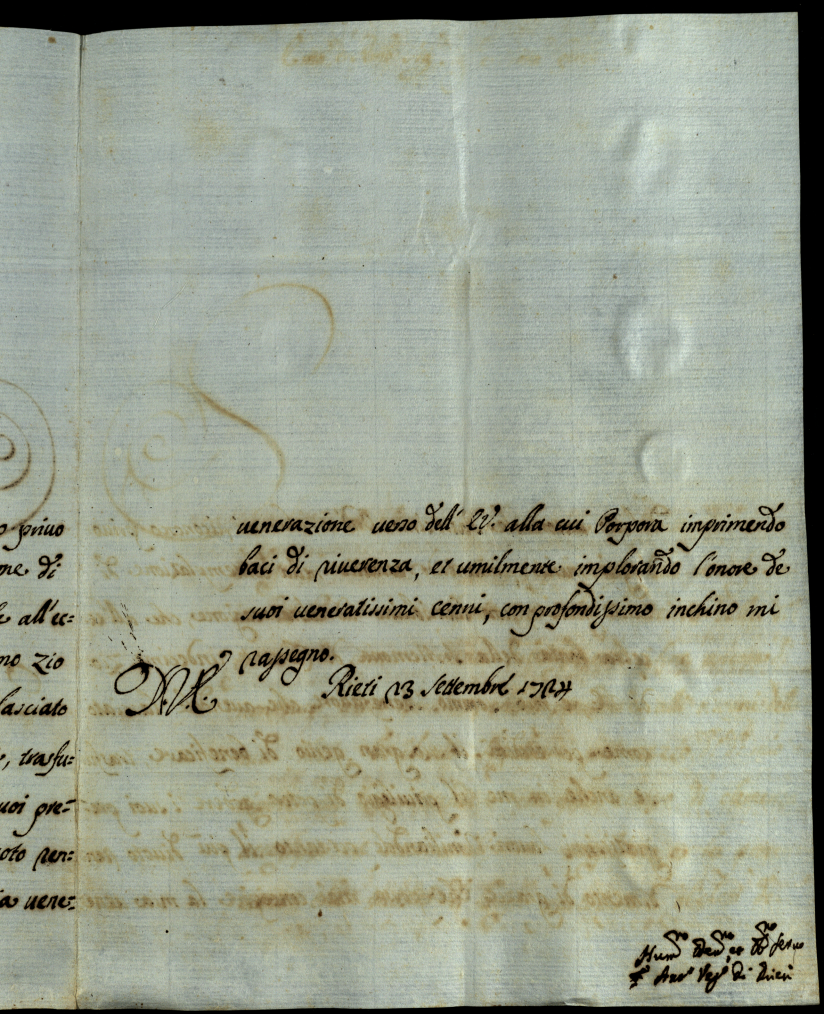 o priuo
me di
e all'ec=
no zio
lasciato
, trasfu=
uoi pre=
oto ren=
ia uene=
uenerazione uerso dell' E.V. alla cui Porpora imprimendo
baci di riuerenza, et umilmente implorando l'onore de
suoi ueneratissimi cenni, con profondissimo inchino mi
rassegno.
Rieti 13 Settembre 1724
Hum.mo Deu.mo et Obb.mo Seruo
Ant.o Ves.o di Rieti